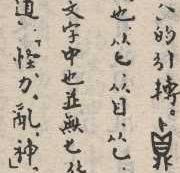 的引
也，从匕，从目，从匕
文字中也並無
道，「怪，力，亂，神」